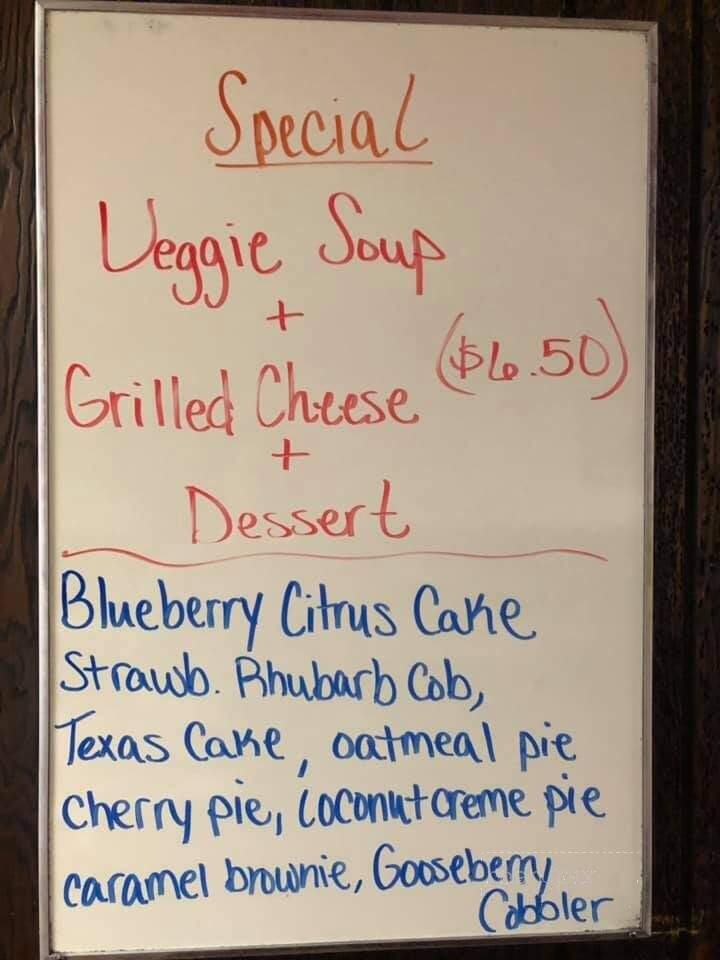 Special
Veggie Soup
+
($6.50)
Grilled Cheese
+
Dessert
Blueberry Citrus Cake
Strawb. Rhubarb Cob,
Texas Cake, oatmeal pie
cherry pie, Coconut creme pie
caramel brownie, Gooseberry
Cobbler